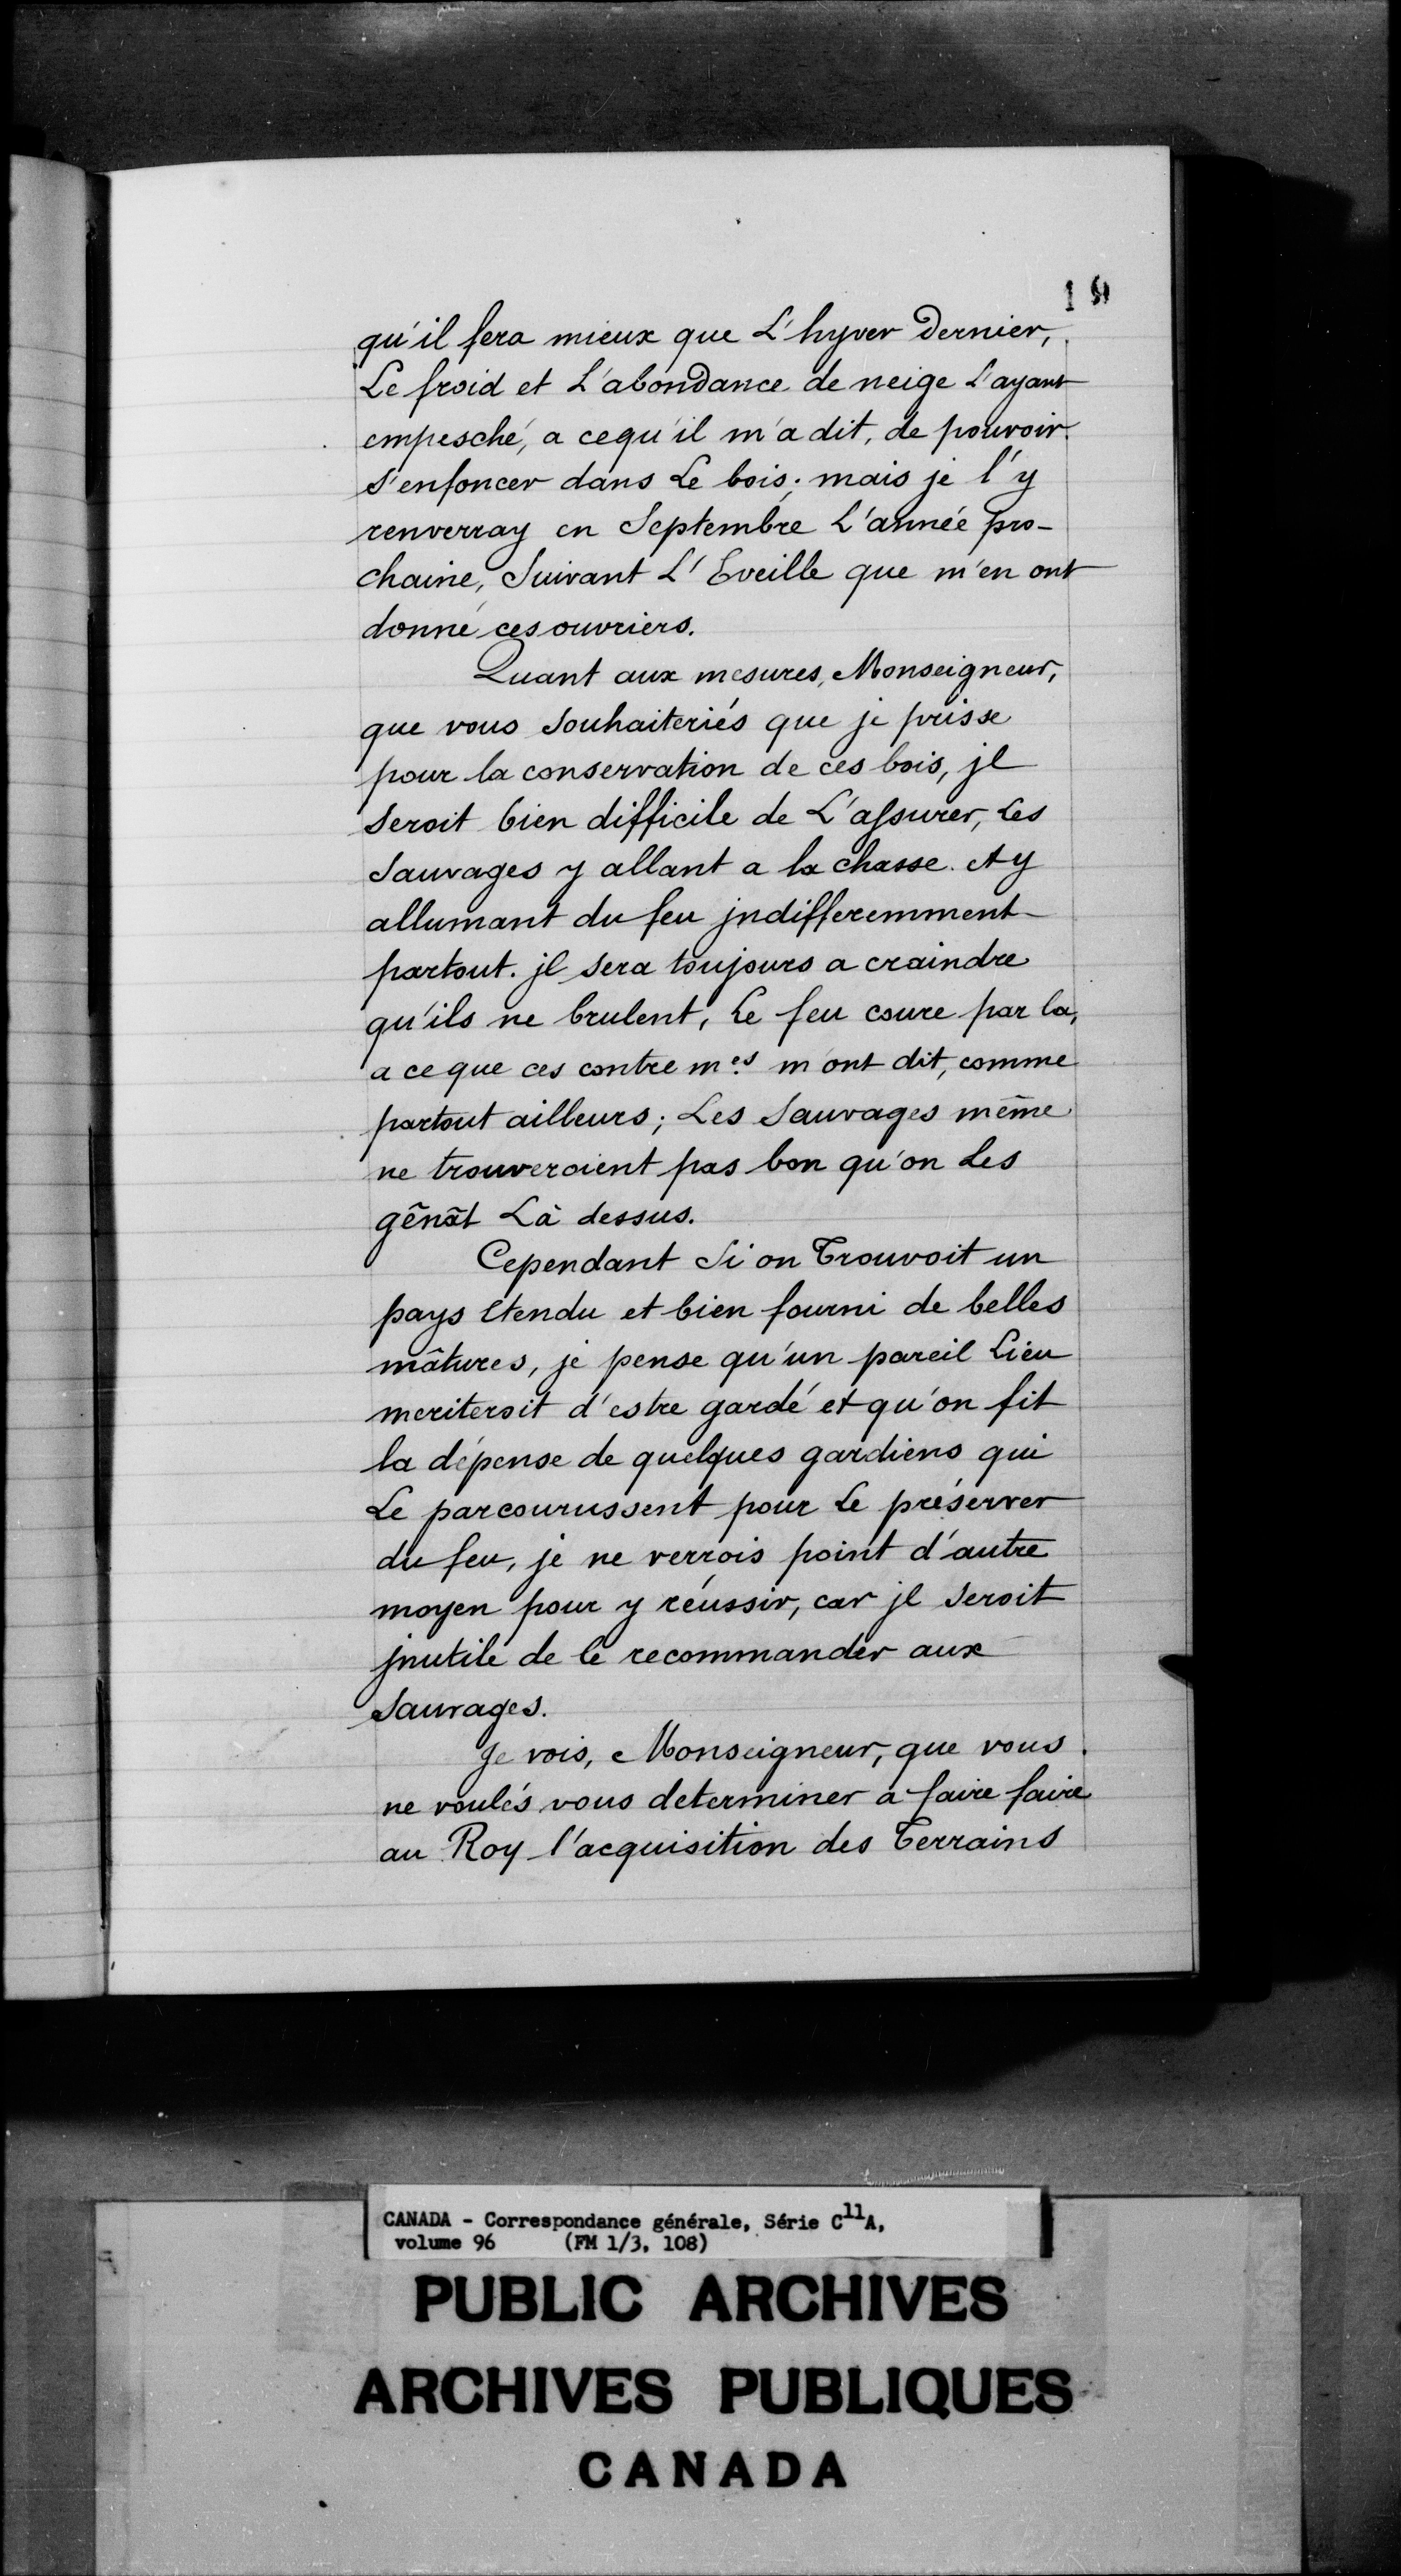 19
qu'il fera mieux que L'hyver Dernier,
Le froid et L'abondance de neige L'ayant
empesché, a cequ'il m'a dit, de pouvoir
s'enfoncer dans Le bois; mais je l'y
renverray en Septembre L'année pro-
chaine, Suivant L'Eveille que m'en ont
donné ces ouvriers.
Quant aux mesures, Monseigneur,
que vous Souhaiteriés que je prisse
pour la conservation de ces bois, jl
Seroit bien difficile de L'assurer, Les
Sauvages y allant a la chasse. et y
allumant du feu jndifferemment
partout. jl Sera toujours a craindre
qu'ils ne brulent, Le feu coure par la,
a ce que ces contre m.es m'ont dit, comme
partout ailleurs; Les Sauvages même
ne trouveroient pas bon qu'on Les
gênât Là dessus.
Cependant Si on Trouvoit un
pays Etendu et bien fourni de belles
mâtures, je pense qu'un pareil Lieu
meriteroit d'estre gardé et qu'on fit
la dépense de quelques gardiens qui
Le parcourussent pour Le préserver
du feu, je ne verrois point d'autre
moyen pour y réussir, car jl Seroit
jnutile de le recommander aux
Sauvages.
Je vois, Monseigneur, que vous
ne voulés vous determiner a faire faire
au Roy l'acquisition des Terrains
CANADA - Correspondance générale, Série C11A,
volume 96 (FM 1/3, 108)
PUBLIC ARCHIVES
ARCHIVES PUBLIQUES
CANADA